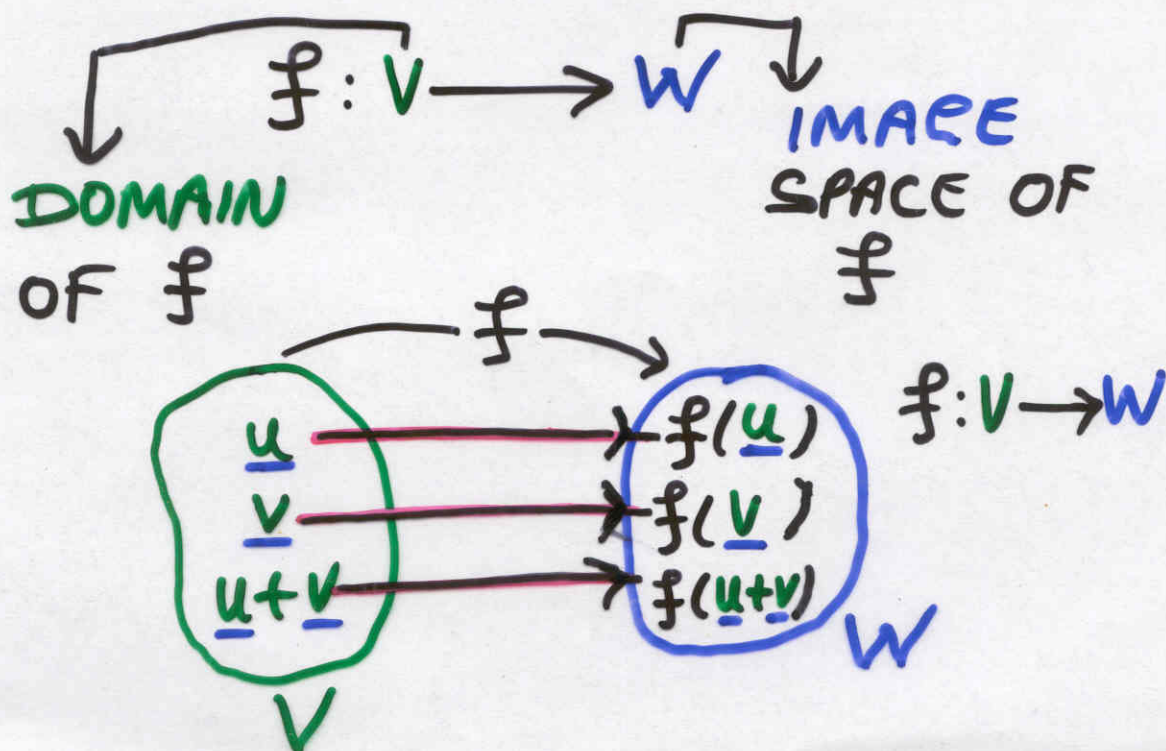 f : V → W
DOMAIN
OF f
IMAGE
SPACE OF
f
f
u → f(u)
v → f(v)
u+v → f(u+v)
V
W
f:V→W